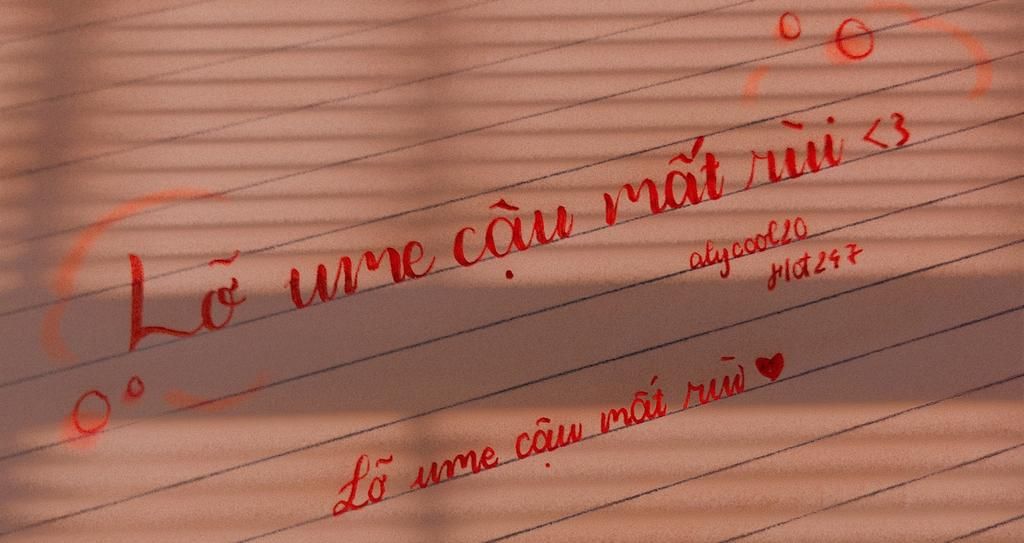 Lỡ ume cậu mất rùi <3
alycool20
Lỡ ume cậu mất rùi ♥